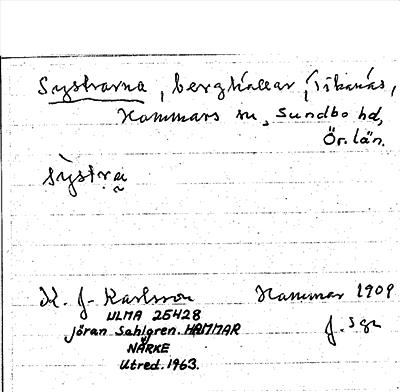 Systrarna, berghällar, Tikanäs,
Hammars sn, Sundbo hd,
Ör. län.
sỳstra̰
K. J. Karlsson Hammar 1909
ULMA 25428 J. Sgn
Jöran Sahlgren. HAMMAR
NÄRKE
Utred. 1963.